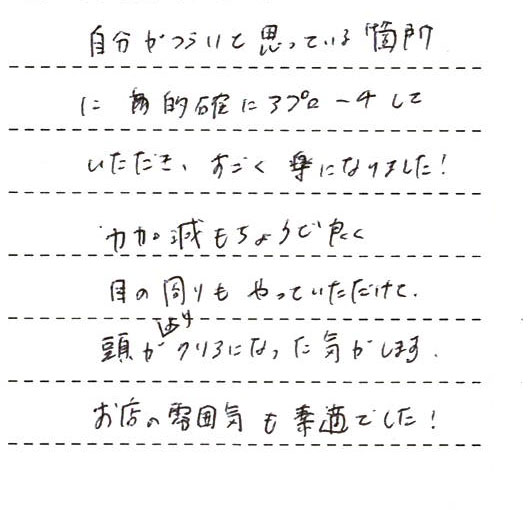 自分がつらいと思っている箇所
に 的確にアプローチして
いただき、すごく楽になりました!
力加減もちょうど良く
目の周りもやっていただけて、
頭がよりクリアになった気がします。
お店の雰囲気も素適でした!